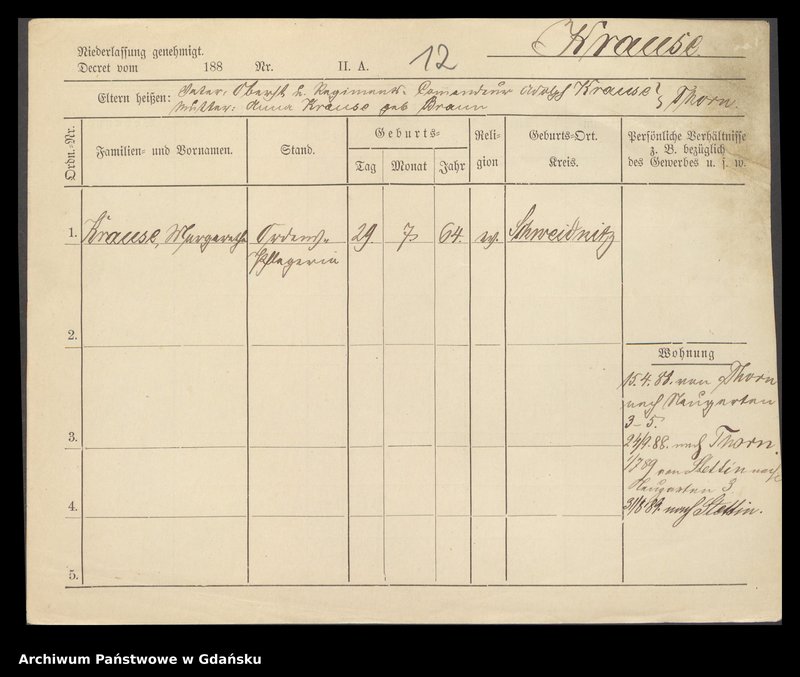 Krause
Niederlassung genehmigt.
Decret vom 188 Nr. II. A. 12
Eltern heißen: Vater: Oberst u. Regiments-Comandeur Adolph Krause } Thorn.
Mutter: Anna Krause geb Braun
Ordn.-Nr.
Familien- und Vornamen.
Stand.
Geburts-
Tag
Monat
Jahr
Reli-
gion
Geburts-Ort.
Kreis.
Persönliche Verhältnisse
z. B. bezüglich
des Gewerbes u. s. w.
1. Krause, Margarethe Ordens- 29. 7. 64. ev. Schweidnitz
Pflegerin
2.
Wohnung
15.4.88. von Thorn
nach Neugarten
3-5.
3.
24/9.88. nach Thorn.
1/7 89 von Stettin nach
Neugarten 3
4.
31/8 89. nach Stettin.
5.
Archiwum Państwowe w Gdańsku